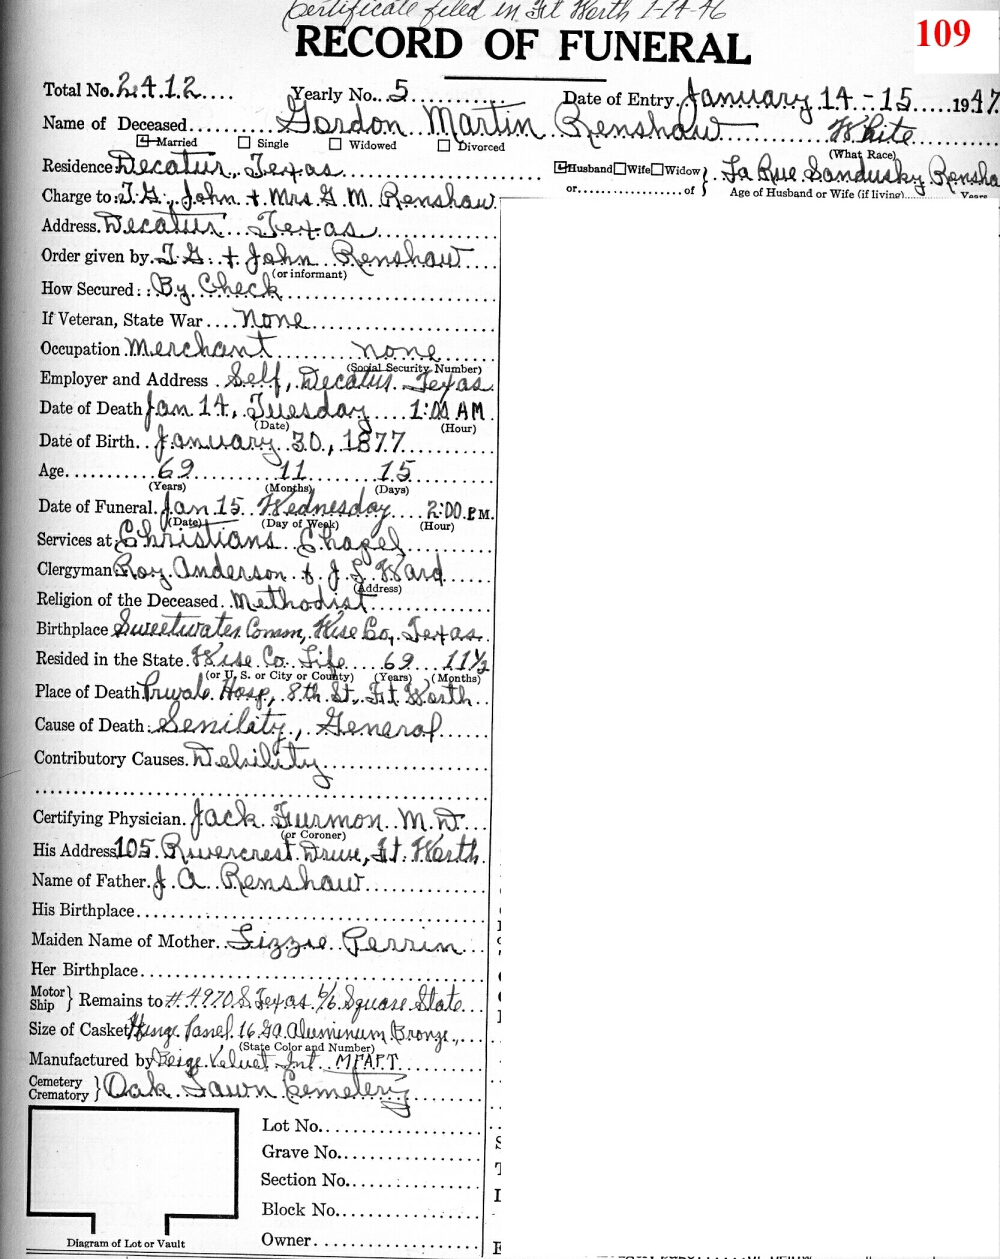 Certificate filed in Ft Worth 1-14-46
109
RECORD OF FUNERAL
Total No. 2412 Yearly No. 5 Date of Entry January 14-15 1947
Name of Deceased Gordon Martin Renshaw White
Married Single Widowed Divorced (What Race)
Residence Decatur, Texas Husband Wife Widow or of La Rue Sandusky Rensha
Charge to: T.G., John + Mrs G. M. Renshaw Age of Husband or Wife (if living) Years
Address Decatur Texas
Order given by T.G. + John Renshaw
(or informant)
How Secured: By Check
If Veteran, State War None
Occupation Merchant none
(Social Security Number)
Employer and Address Self, Decatur Texas
Date of Death Jan 14, Tuesday 1:00 AM
(Date) (Hour)
Date of Birth January 30, 1877
Age 69 11 15
(Years) (Months) (Days)
Date of Funeral Jan 15 Wednesday 2:00 P.M.
(Date) (Day of Week) (Hour)
Services at Christians Chapel
Clergyman Roy Anderson + J. L. Ward
(Address)
Religion of the Deceased Methodist
Birthplace Sweetwater Comm, Wise Co, Texas
Resided in the State Wise Co. Life 69 11½
(or U. S. or City or County) (Years) (Months)
Place of Death Private Hosp, 8th St., Ft Worth
Cause of Death: Senility, General
Contributory Causes Debility
Certifying Physician Jack Furmon M.D.
(or Coroner)
His Address 105 Rivercrest Drive, Ft. Worth
Name of Father J. A. Renshaw
His Birthplace
Maiden Name of Mother Lizzie Perrin
Her Birthplace
Motor Ship } Remains to # 4970 S Texas 6/6 Square State
Size of Casket Hinge Panel 16 Ga Aluminum Bronze,
(State Color and Number)
Manufactured by Beige Velvet Int.
Cemetery Crematory } Oak Lawn Cemetery
Lot No.
Grave No.
Section No.
Block No.
Owner
Diagram of Lot or Vault